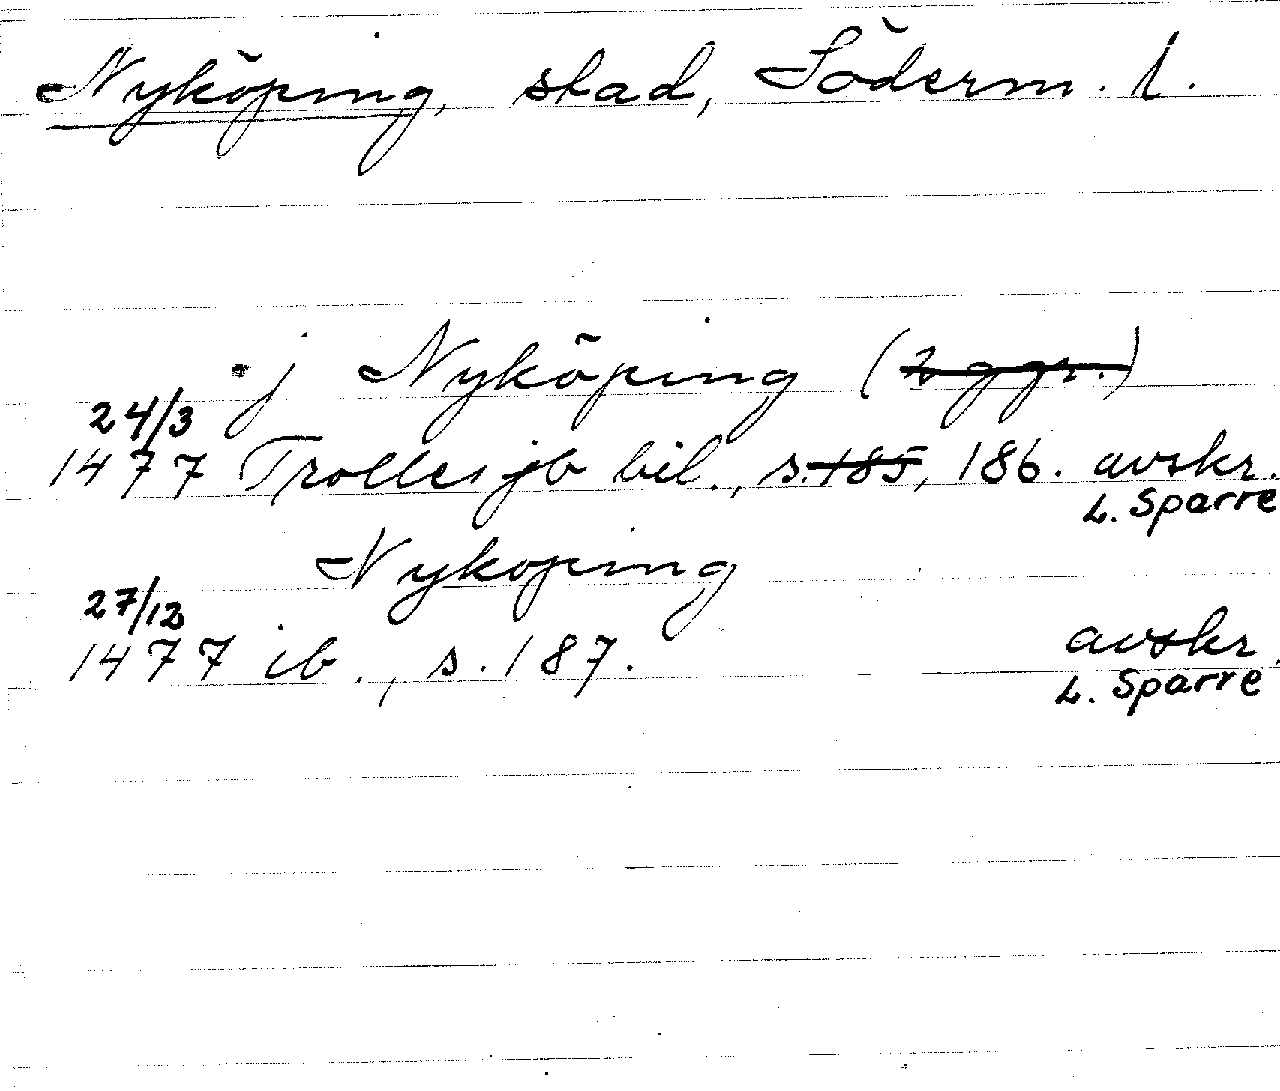 Nyköping, stad, Söderm. l.
j Nyköping (2 ggr.)
24/3
1477 Trolles jb bil., s. 185, 186. avskr.
L. Sparre
Nykoping
27/12
1477 ib., s. 187. avskr.
L. Sparre